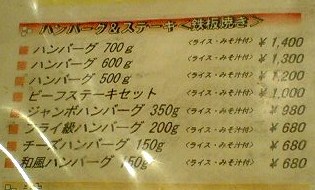 ハンバーグ&ステーキ<鉄板焼き>
ハンバーグ 700g <ライス・みそ汁付> ¥1,400
ハンバーグ 600g <ライス・みそ汁付> ¥1,300
ハンバーグ 500g <ライス・みそ汁付> ¥1,200
ビーフステーキセット <ライス・みそ汁付> ¥1,000
ジャンボハンバーグ 350g <ライス・みそ汁付> ¥980
フライ級ハンバーグ 200g <ライス・みそ汁付> ¥680
チーズハンバーグ 150g <ライス・みそ汁付> ¥680
和風ハンバーグ 150g <ライス・みそ汁付> ¥680